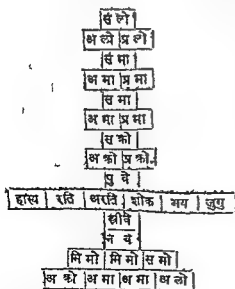 सं लो
अ लो प्र लो
सं मा
अ मा प्र मा
स मा
अ मा प्र मा
स क्रो
अ क्रो प्र क्रो
पु वे
हास्य रति अरति शोक भय जुगु
स्त्रीवे
न वे
मि मो मि मो स मो
अ क्रो अ मा अ मा अ लो